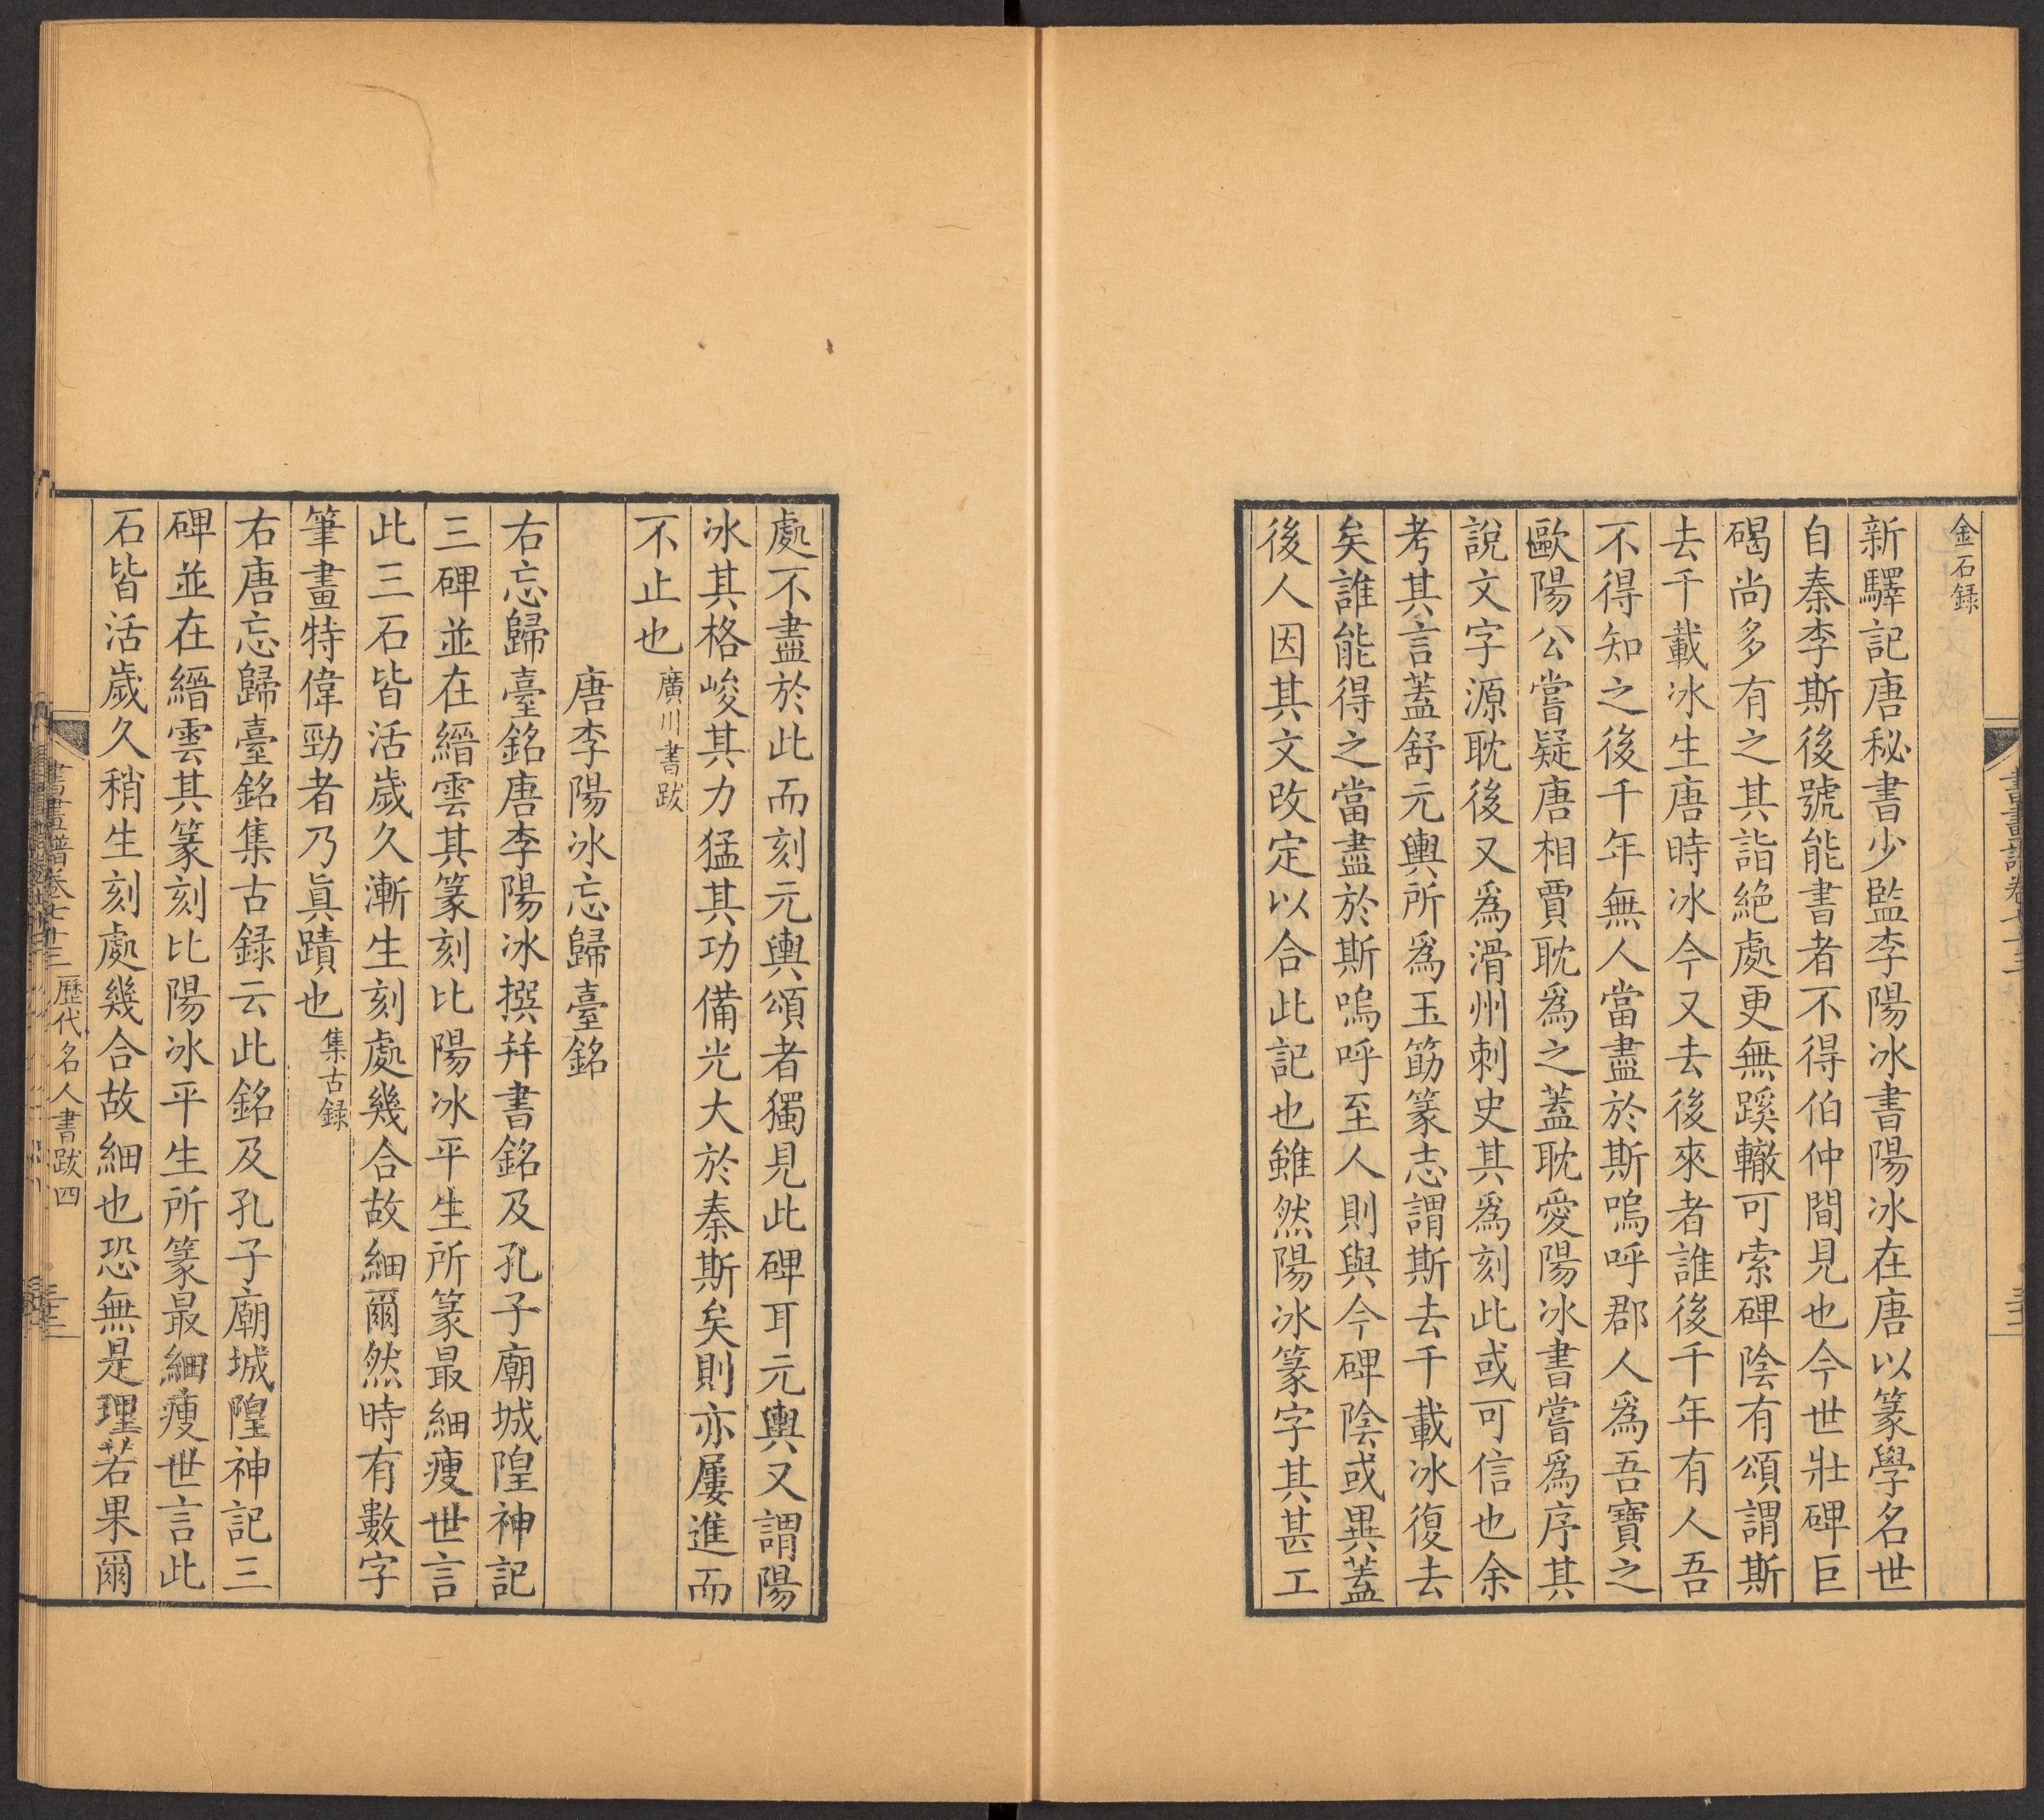 金石録
新驛記唐秘書少監李陽冰書陽冰在唐以篆學名世
自秦李斯後號能書者不得伯仲間見也今世壯碑巨
碣尚多有之其詣絶處更無蹊轍可索碑陰有頌謂斯
去千載冰生唐時冰今又去後來者誰後千年有人吾
不得知之後千年無人當盡於斯嗚呼郡人爲吾寶之
歐陽公嘗疑唐相賈耽爲之蓋耽愛陽冰書嘗爲序其
說文字源耽後又爲滑州刺史其爲刻此或可信也余
考其言蓋舒元輿所爲玉筯篆志謂斯去千載冰復去
矣誰能得之當盡於斯嗚呼至人則與今碑陰或異蓋
後人因其文改定以合此記也雖然陽冰篆字其甚工
處不盡於此而刻元輿頌者獨見此碑耳元輿又謂陽
冰其格峻其力猛其功備光大於秦斯矣則亦屢進而
不止也 廣川書跋
唐李陽冰忘歸臺銘
右忘歸臺銘唐李陽冰撰并書銘及孔子廟城隍神記
三碑並在縉雲其篆刻比陽冰平生所篆最細瘦世言
此三石皆活歲久漸生刻處幾合故細爾然時有數字
筆畫特偉勁者乃眞蹟也 集古録
右唐忘歸臺銘集古録云此銘及孔子廟城隍神記三
碑並在縉雲其篆刻比陽冰平生所篆最細瘦世言此
石皆活歲久稍生刻處幾合故細也恐無是理若果爾
書畫譜卷七十三 歷代名人書跋四